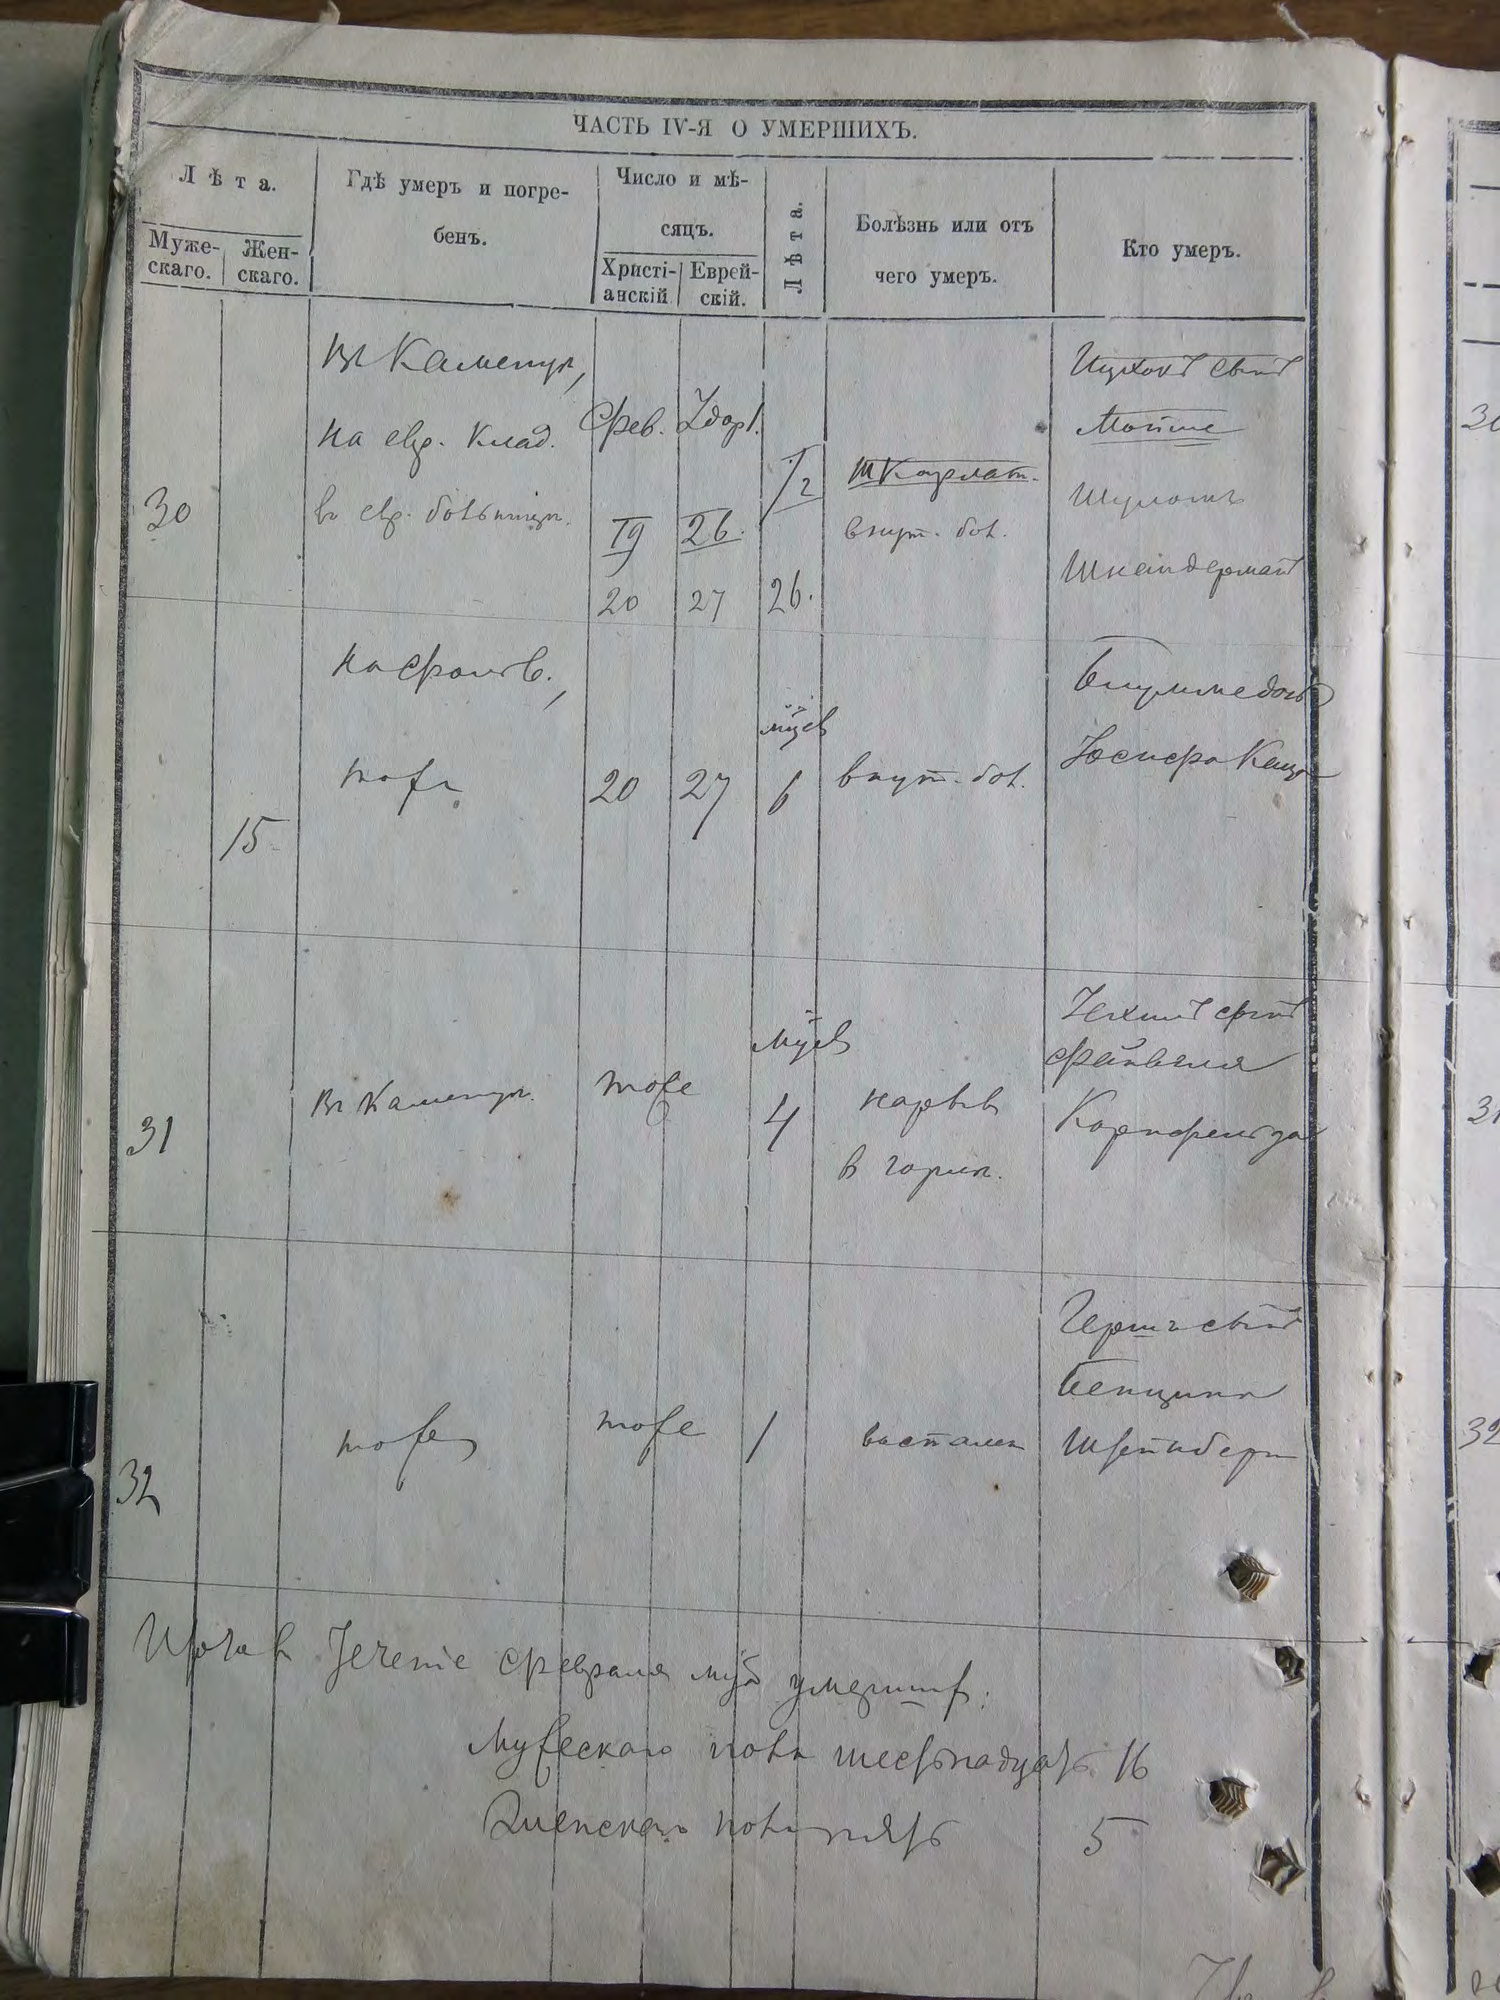 ЧАСТЬ IV-Я О УМЕРШИХЪ.
Лѣта.
Муже-
скаго.
Жен-
скаго.
Гдѣ умеръ и погре-
бенъ.
Число и мѣ-
сяцъ.
Христі-
анскій
Еврей-
скій.
Лѣта.
Болѣзнь или отъ
чего умеръ.
Кто умеръ.
30
въ Каменцѣ,
на евр. клад.
въ евр. больницѣ.
Фев.
19
20
26.
27
1/2
26.
шкарлат.
внут. бол.
сынъ
Мошко
Шулимъ
Шнейдерманъ
15
тоже
20
27
мцев
6
внут. бол.
Іосифа Кац
31
въ Каменцѣ.
тоже
мцев
4
нарывъ
в горлѣ.
сынъ
Файвеля
Корнфельда
32
тоже
тоже
1
воспален
Гершъ сынъ
Бенциона
Штейнберг
Итого въ Теченіе февраля мца умершихъ:
Мужескаго пола шестнадцать 16
Женскаго пола пять 5